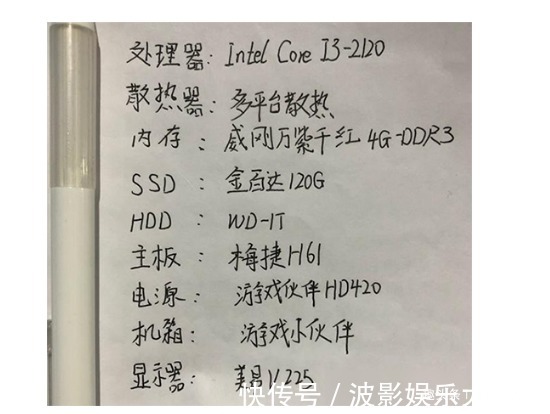 处理器: Intel Core I3-2120
散热器: 多平台散热
内存: 威刚万紫千红4G-DDR3
SSD: 金百达120G
HDD: WD-1T
主板: 梅捷H61
电源: 游戏伙伴HD420
机箱: 游戏小伙伴
显示器: 美昌V225
快传号/波影娱乐